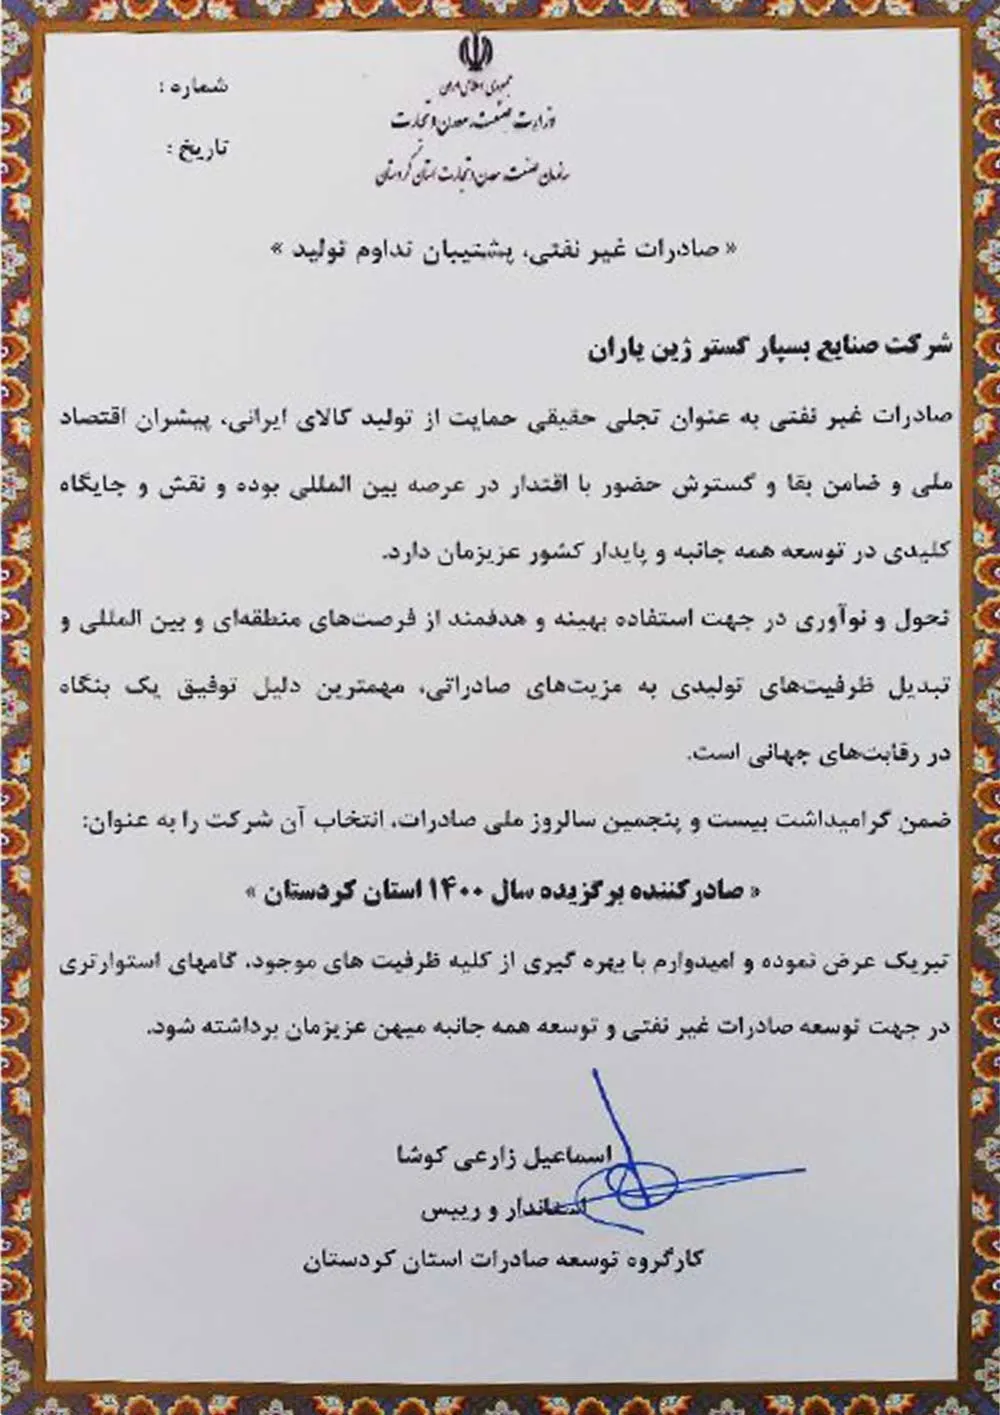 جمهوری اسلامی ایران
وزارت صنعت، معدن و تجارت
سازمان صنعت، معدن و تجارت استان کردستان
شماره :
تاریخ :
« صادرات غیر نفتی، پشتیبان تداوم تولید »
شرکت صنایع بسپار گستر ژین یاران
صادرات غیر نفتی به عنوان تجلی حقیقی حمایت از تولید کالای ایرانی، پیشران اقتصاد
ملی و ضامن بقا و گسترش حضور با اقتدار در عرصه بین المللی بوده و نقش و جایگاه
کلیدی در توسعه همه جانبه و پایدار کشور عزیزمان دارد.
تحول و نوآوری در جهت استفاده بهینه و هدفمند از فرصت‌های منطقه‌ای و بین المللی و
تبدیل ظرفیت‌های تولیدی به مزیت‌های صادراتی، مهمترین دلیل توفیق یک بنگاه
در رقابت‌های جهانی است.
ضمن گرامیداشت بیست و پنجمین سالروز ملی صادرات، انتخاب آن شرکت را به عنوان:
« صادرکننده برگزیده سال ۱۴۰۰ استان کردستان »
تبریک عرض نموده و امیدوارم با بهره گیری از کلیه ظرفیت های موجود، گامهای استوارتری
در جهت توسعه صادرات غیر نفتی و توسعه همه جانبه میهن عزیزمان برداشته شود.
اسماعیل زارعی کوشا
استاندار و رییس
کارگروه توسعه صادرات استان کردستان